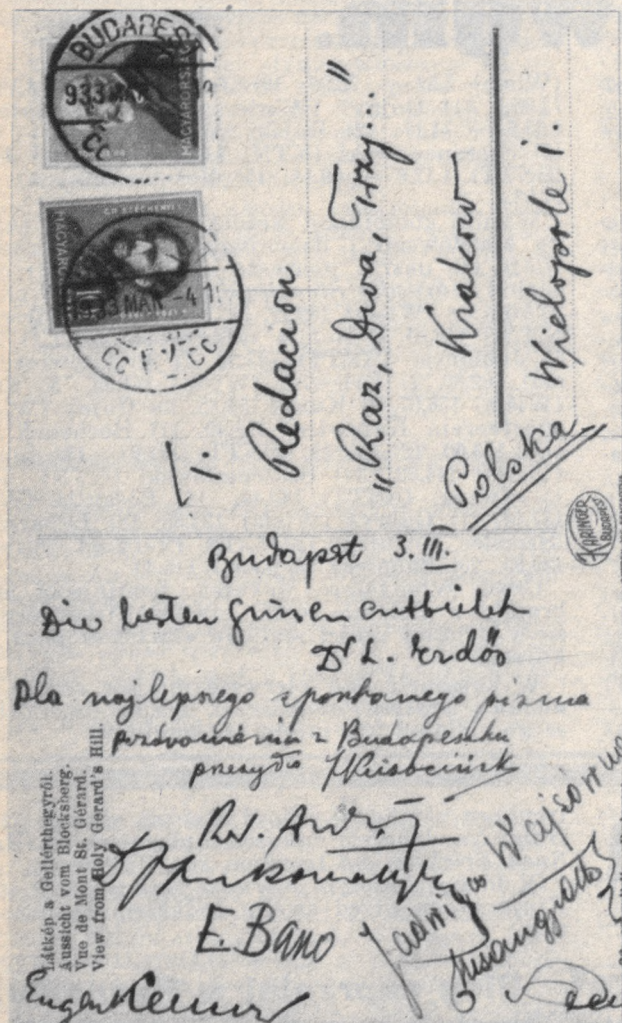 BUDAPEST
933 MAR
MAGYARORSZÁG
GR SZÉCHENYI I
933 MAR -4 1
T. Redacion
"Raz, Dwa, Trzy..."
Kraków
Wielopole i.
Polska
KARINGER
BUDAPEST
Budapest 3. III.
Die besten grüssen entbietet
Dr L. Erdős
Dla najlepszego sportowego pisma
pozdrowienia z Budapesztu
przesyła JKusociński
E. Bano
Jadwiga Wajsówna
Eugen
Látkép a Gellérthegyről.
Aussicht vom Blocksberg.
Vue de Mont St. Gérard.
View from Holy Gerard's Hill.